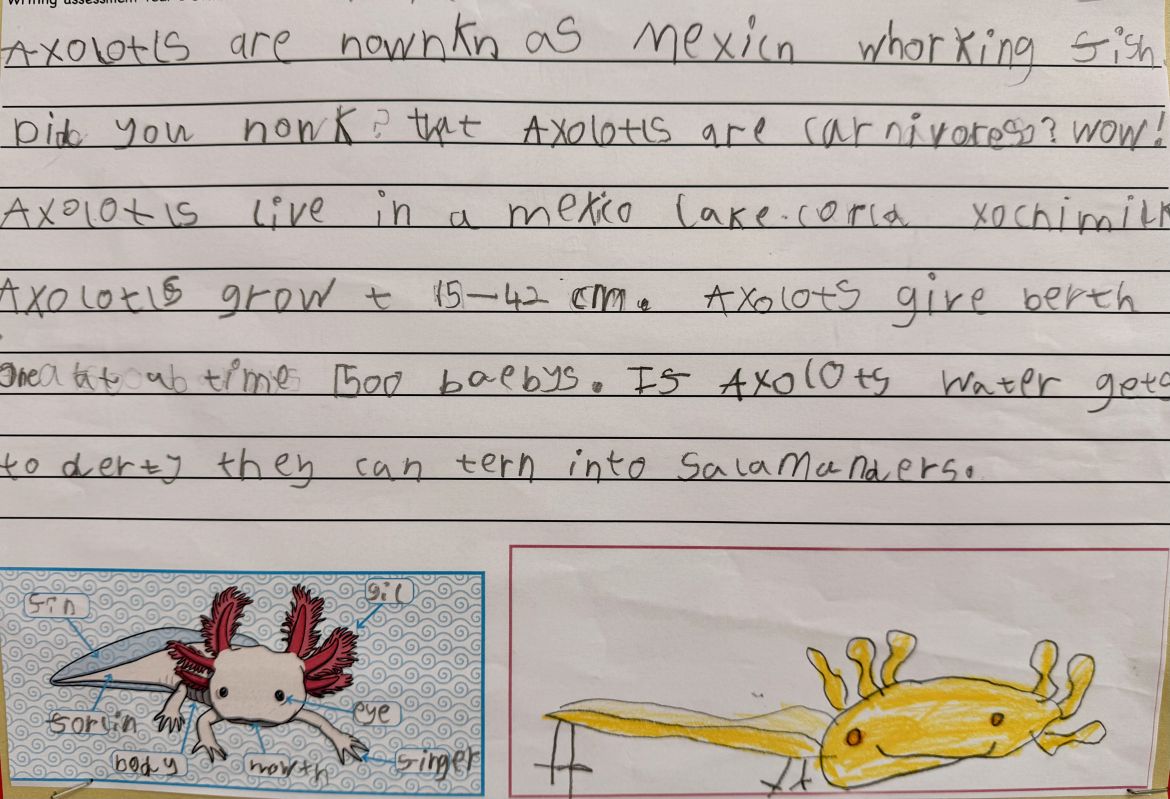 Axolotls are nownkn as mexicn whorking fish.
Did you nonk? that Axolotls are carnivores? wow!
Axolotls live in a mexico lake. corld xochimilk
Axolotls grow t 15-42 cm. Axolots give berth
time 1500 baebys. If Axolots water gets
to derty they can tern into salamanders.
fin
gil
eye
body
mowth
finger